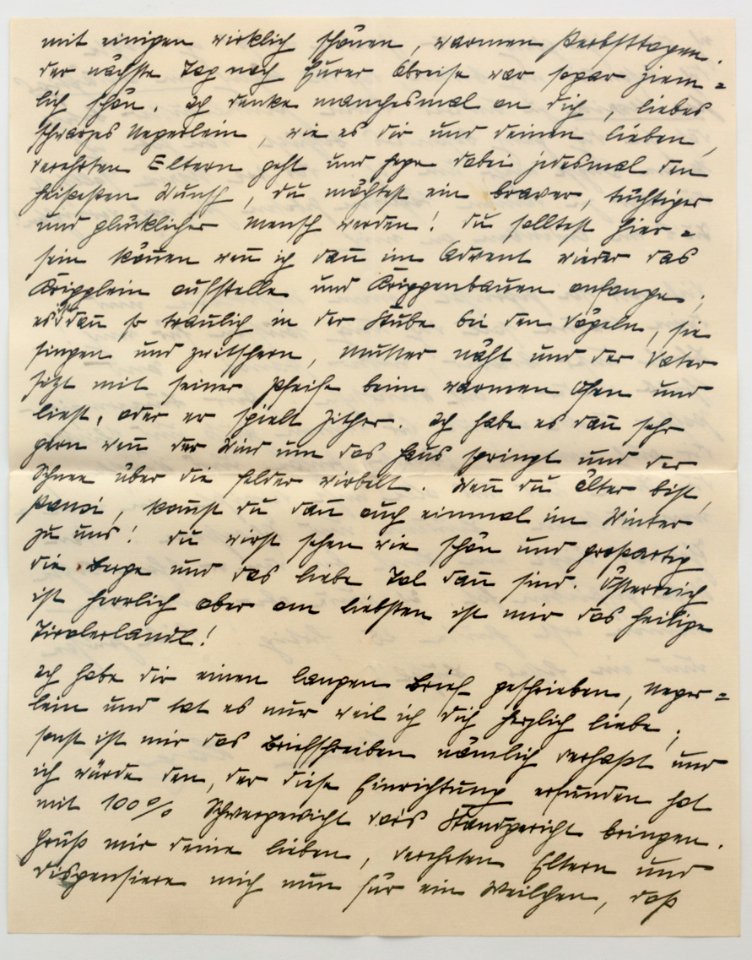 mit einigen wirklich schönen, warmen Herbsttagen;
der nächste Tag nach Eurer Abreise war sogar ziem=
lich schön. Ich denke manchesmal an dich, liebes
schwarzes Negerlein, wie es dir und deinen lieben,
verehrten Eltern geht und hege dabei jedesmal den
heißesten Wunsch, du möchtest ein braver, tüchtiger
und glücklicher Mensch werden! Du solltest hier=
sein können weñ ich dañ im Advent wieder das
Kripplein aufstelle und Krippenbauen anfange;
es ist dañ so traulich in der Stube bei den Vögeln, sie
singen und zwitschern, Mutter näht und der Vater
sitzt mit seiner Pfeife beim warmen Ofen und
liest, oder er spielt Zither. Ich habe es dañ sehr
gern weñ der Wind um das Haus springt und der
Schnee über die Felder wirbelt. Weñ du älter bist,
Hansi, komst du dañ auch einmal im Winter
zu uns! Du wirst sehen wie schön und großartig
die Berge und das liebe Tal dañ sind. Österreich
ist herrlich aber am liebsten ist mir das heilige
Tirolerlandl!
Ich habe dir einen langen Brief geschrieben, Neger=
lein und tat es nur weil ich dich herzlich liebe;
sonst ist mir das Briefschreiben nämlich verhaßt und
ich würde den, der diese Einrichtung erfunden hat
mit 100% Schwergewicht vor's Standgericht bringen.
Grüß mir deine lieben, verehrten Eltern und
dispensiere mich nun für ein Weilchen, daß